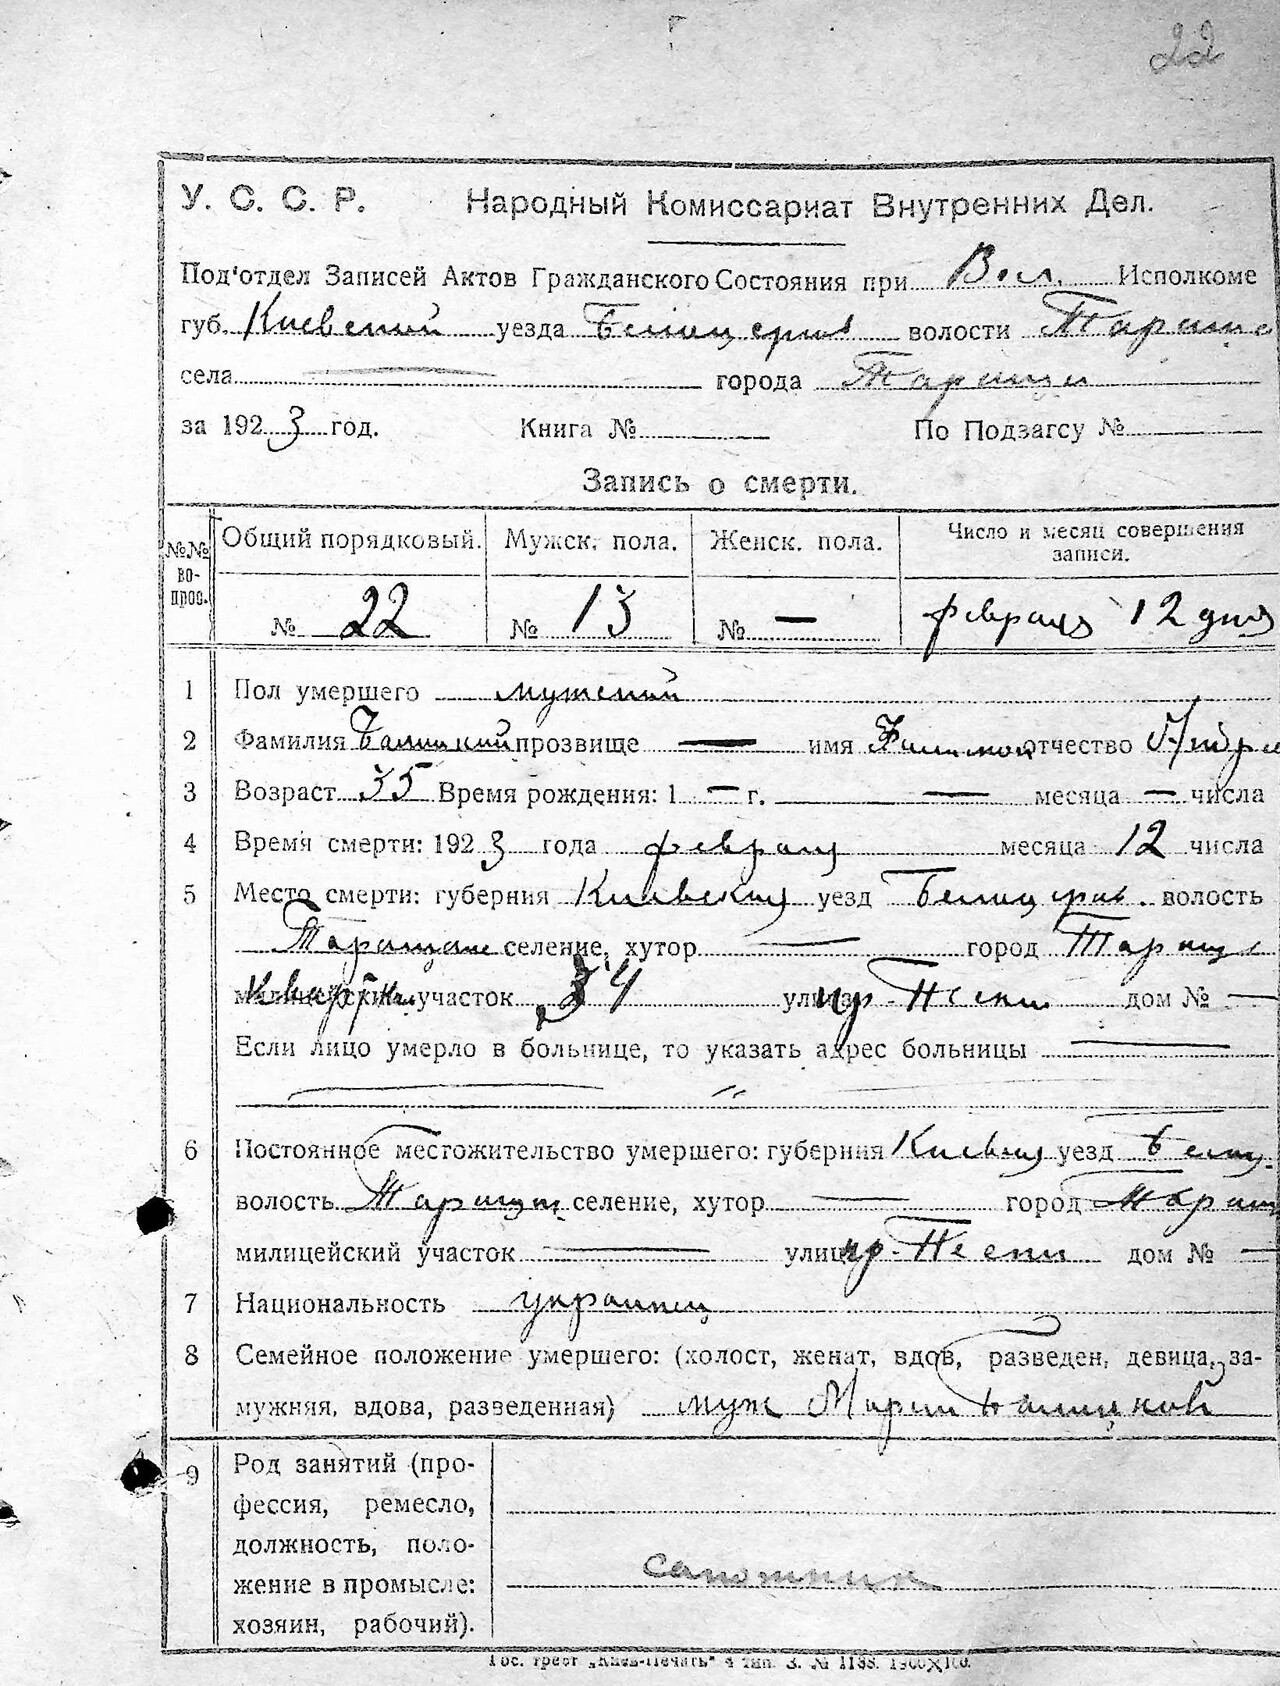 22
У. С. С. Р. Народный Комиссариат Внутренних Дел.
Под'отдел Записей Актов Гражданского Состояния при Вол. Исполкоме
губ. Киевский уезда Белоцеркв волости Тараща
села города Таращи
за 1923 год. Книга № По Подзагсу №
Запись о смерти.
№№ вопрос. Общий порядковый. Мужск. пола. Женск. пола. Число и месяц совершения записи.
№ 22 № 13 № — февраля 12 дня
1 Пол умершего мужской
2 Фамилия прозвище — имя Филимон отчество Андре
3 Возраст 35 Время рождения: 1 — г. — месяца — числа
4 Время смерти: 1923 года февраля месяца 12 числа
5 Место смерти: губерния Киевская уезд Белоцеркв. волость
Таращан селение, хутор — город Тараща
участок 34 улица пр-Пески дом № —
Если лицо умерло в больнице, то указать адрес больницы —
— "
6 Постоянное местожительство умершего: губерния Киевская уезд Белоц.
волость Таращан селение, хутор — город Таращ
милицейский участок — улица пр-Пески дом № —
7 Национальность украинец
8 Семейное положение умершего: (холост, женат, вдов, разведен, девица, за-
мужняя, вдова, разведенная) муж Марии
9 Род занятий (про-
фессия, ремесло,
должность, поло-
жение в промысле: сапожник
хозяин, рабочий).
Гос. трест „Киев-Печать" 4 тип. З. № 1138. 1900×100.